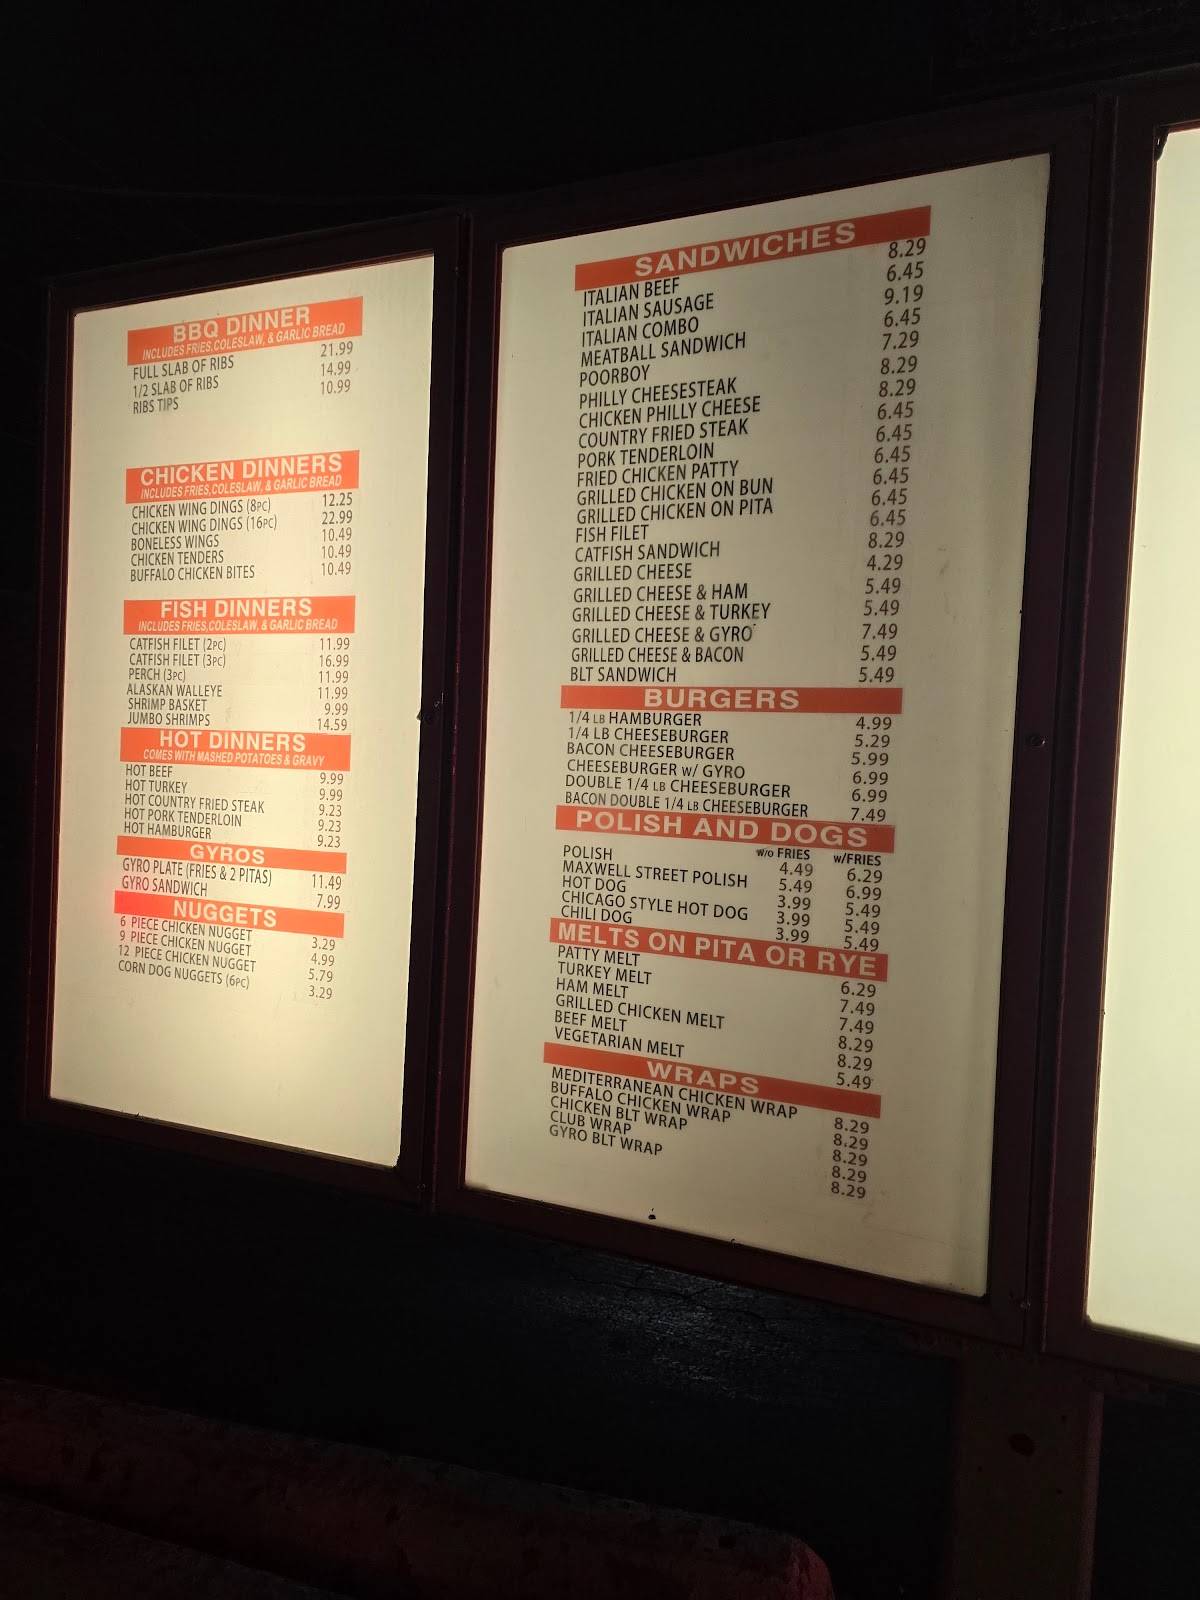 BBQ DINNER
INCLUDES FRIES,COLESLAW, & GARLIC BREAD
FULL SLAB OF RIBS 21.99
1/2 SLAB OF RIBS 14.99
RIBS TIPS 10.99
CHICKEN DINNERS
INCLUDES FRIES,COLESLAW, & GARLIC BREAD
CHICKEN WING DINGS (8PC) 12.25
CHICKEN WING DINGS (16PC) 22.99
BONELESS WINGS 10.49
CHICKEN TENDERS 10.49
BUFFALO CHICKEN BITES 10.49
FISH DINNERS
INCLUDES FRIES,COLESLAW, & GARLIC BREAD
CATFISH FILET (2PC) 11.99
CATFISH FILET (3PC) 16.99
PERCH (3PC) 11.99
ALASKAN WALLEYE 11.99
SHRIMP BASKET 9.99
JUMBO SHRIMPS 14.59
HOT DINNERS
COMES WITH MASHED POTATOES & GRAVY
HOT BEEF 9.99
HOT TURKEY 9.99
HOT COUNTRY FRIED STEAK 9.23
HOT PORK TENDERLOIN 9.23
HOT HAMBURGER 9.23
GYROS
GYRO PLATE (FRIES & 2 PITAS) 11.49
GYRO SANDWICH 7.99
NUGGETS
6 PIECE CHICKEN NUGGET 3.29
9 PIECE CHICKEN NUGGET 4.99
12 PIECE CHICKEN NUGGET 5.79
CORN DOG NUGGETS (6PC) 3.29
SANDWICHES
ITALIAN BEEF 8.29
ITALIAN SAUSAGE 6.45
ITALIAN COMBO 9.19
MEATBALL SANDWICH 6.45
POORBOY 7.29
PHILLY CHEESESTEAK 8.29
CHICKEN PHILLY CHEESE 8.29
COUNTRY FRIED STEAK 6.45
PORK TENDERLOIN 6.45
FRIED CHICKEN PATTY 6.45
GRILLED CHICKEN ON BUN 6.45
GRILLED CHICKEN ON PITA 6.45
FISH FILET 6.45
CATFISH SANDWICH 8.29
GRILLED CHEESE 4.29
GRILLED CHEESE & HAM 5.49
GRILLED CHEESE & TURKEY 5.49
GRILLED CHEESE & GYRO 7.49
GRILLED CHEESE & BACON 5.49
BLT SANDWICH 5.49
BURGERS
1/4 LB HAMBURGER 4.99
1/4 LB CHEESEBURGER 5.29
BACON CHEESEBURGER 5.99
CHEESEBURGER W/ GYRO 6.99
DOUBLE 1/4 LB CHEESEBURGER 6.99
BACON DOUBLE 1/4 LB CHEESEBURGER 7.49
POLISH AND DOGS
W/O FRIES W/FRIES
POLISH 4.49 6.29
MAXWELL STREET POLISH 5.49 6.99
HOT DOG 3.99 5.49
CHICAGO STYLE HOT DOG 3.99 5.49
CHILI DOG 3.99 5.49
MELTS ON PITA OR RYE
PATTY MELT 6.29
TURKEY MELT 7.49
HAM MELT 7.49
GRILLED CHICKEN MELT 8.29
BEEF MELT 8.29
VEGETARIAN MELT 5.49
WRAPS
MEDITERRANEAN CHICKEN WRAP 8.29
BUFFALO CHICKEN WRAP 8.29
CHICKEN BLT WRAP 8.29
CLUB WRAP 8.29
GYRO BLT WRAP 8.29